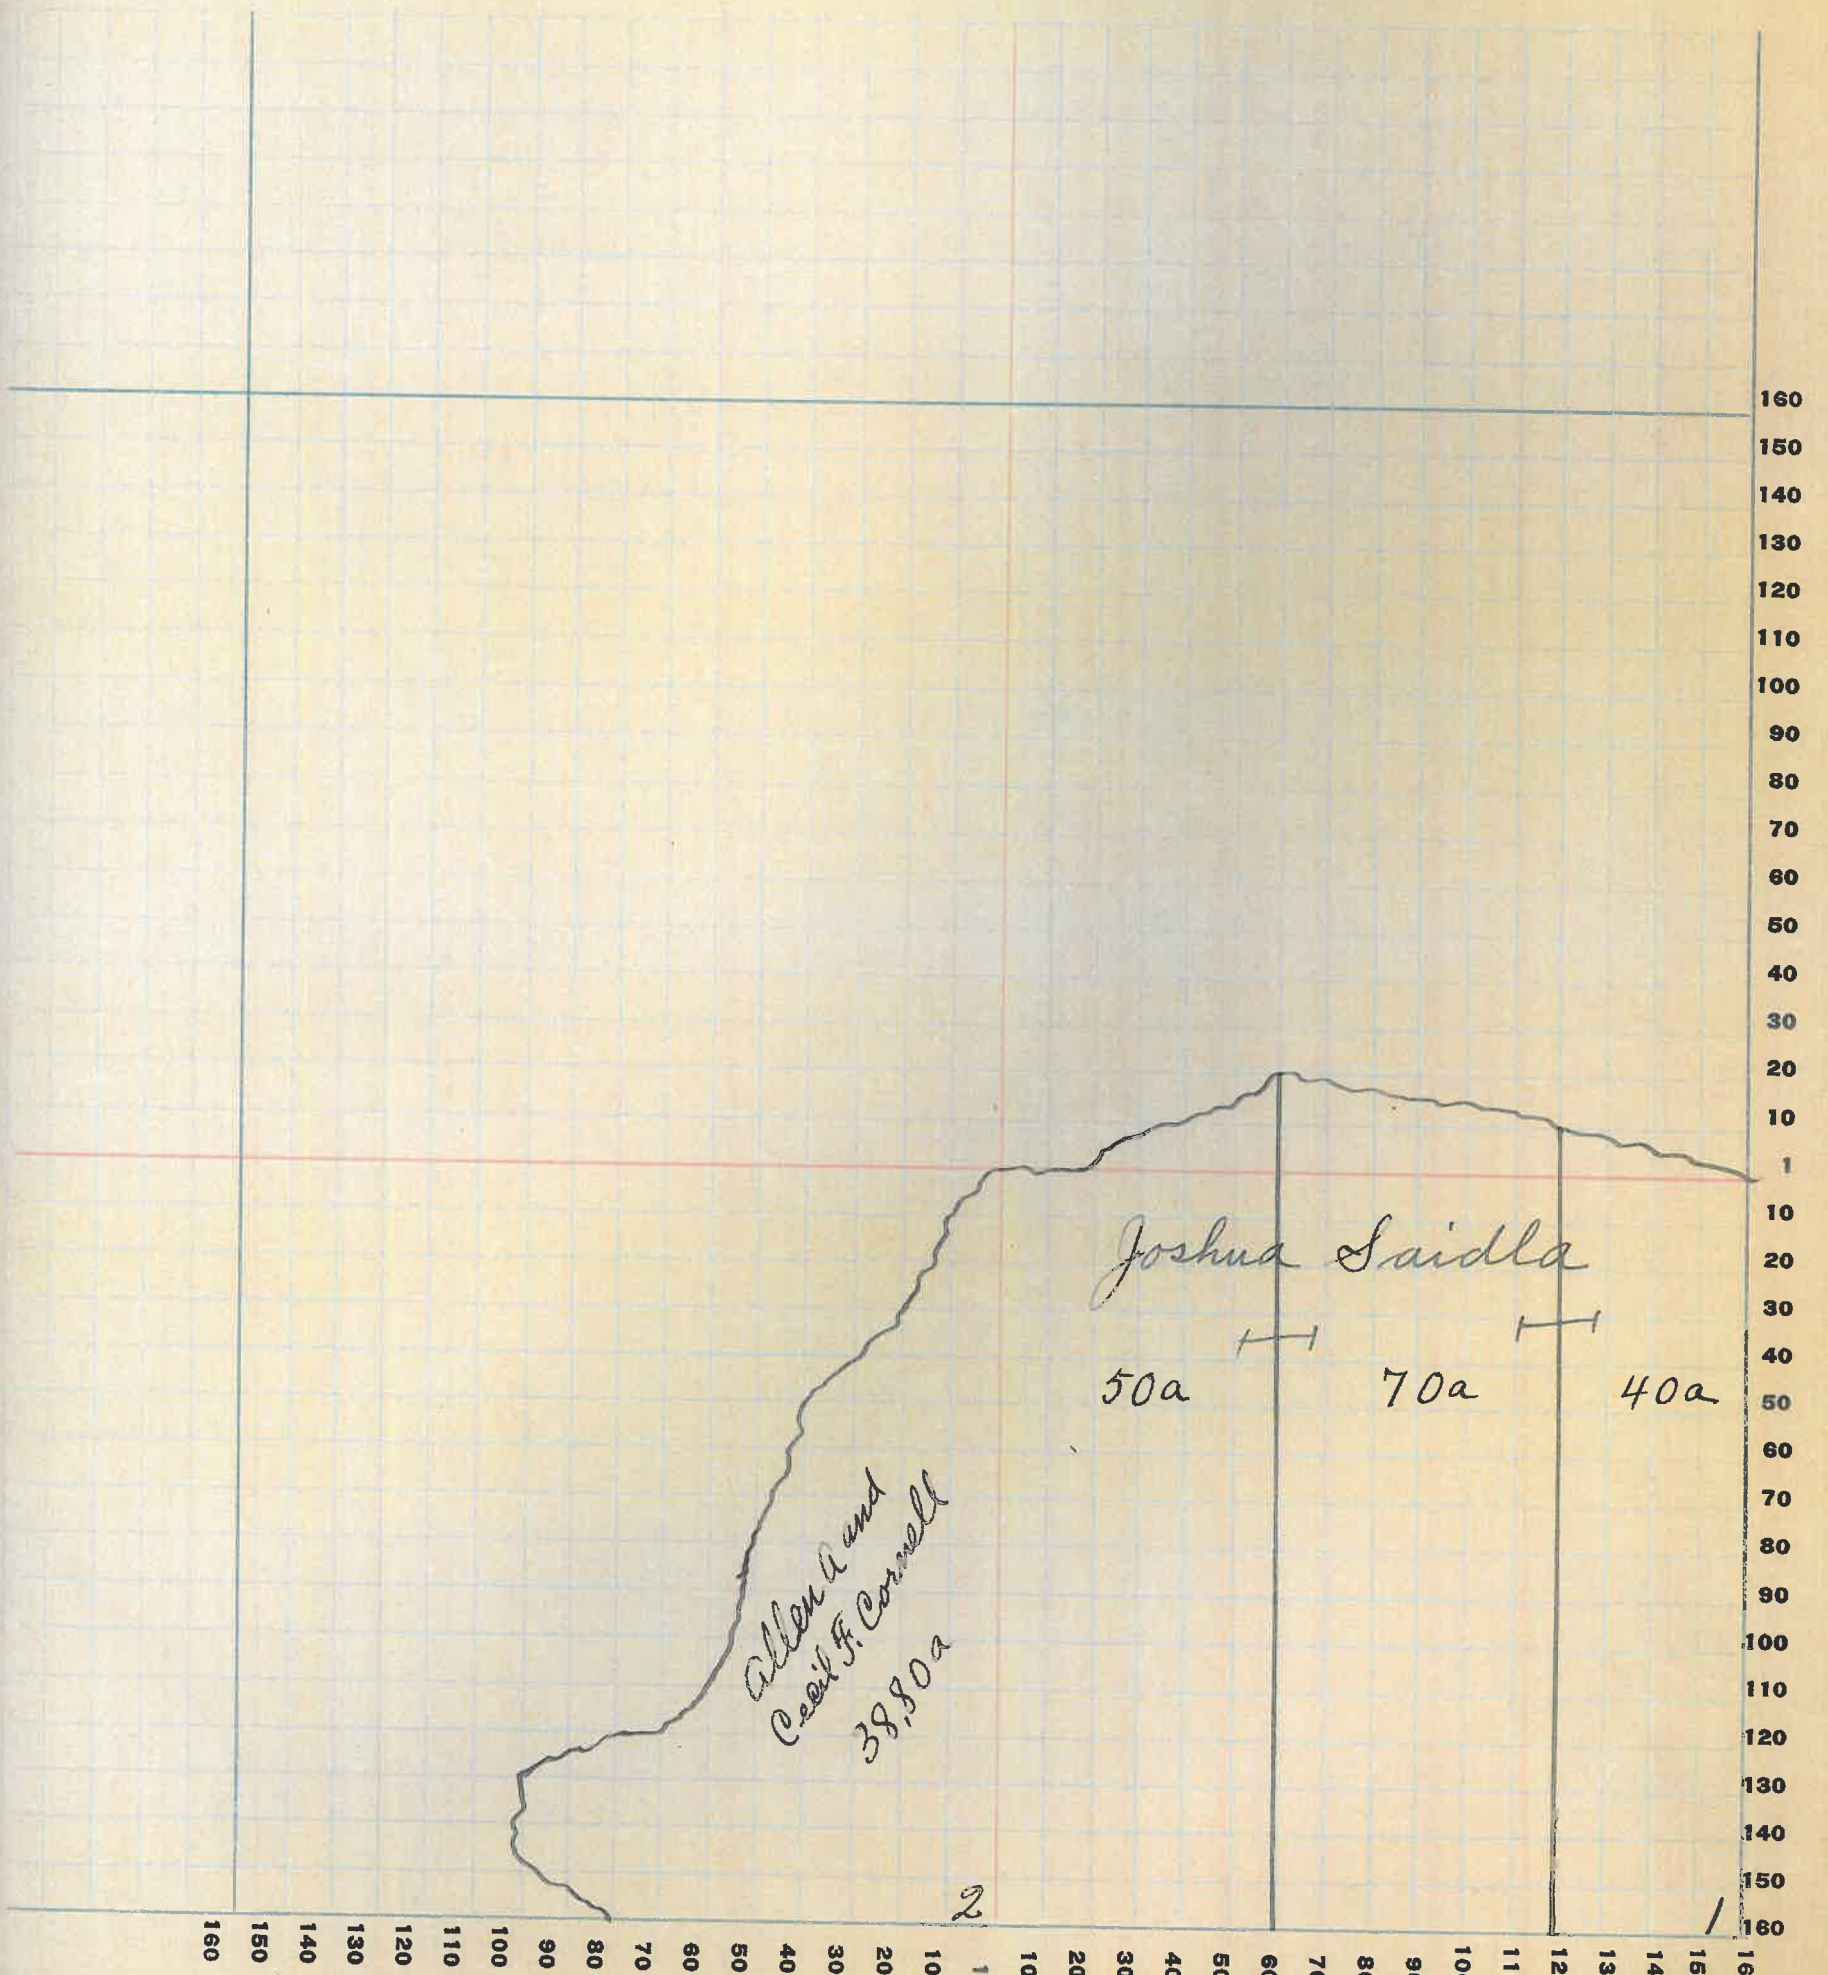 160
150
140
130
120
110
100
90
80
70
60
50
40
30
20
10
1
10
20
30
40
50
60
70
80
90
100
110
120
130
140
150
160
Joshua Saidla
50a 70a 40a
Allen A and
Cecil F. Cornell
38.80a
2 1
160 150 140 130 120 110 100 90 80 70 60 50 40 30 20 10 1 10 20 30 40 50 60 70 80 90 10 11 12 13 14 15 16